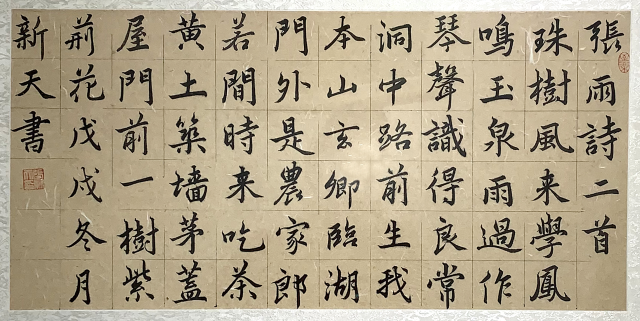 張雨詩二首
珠樹風来學鳳
鳴玉泉雨過作
琴聲識得良常
洞中路前生我
本山玄卿臨湖
門外是農家郎
若間時来吃茶
黄土築墻茅蓋
屋門前一樹紫
荊花戊戌冬月
新天書